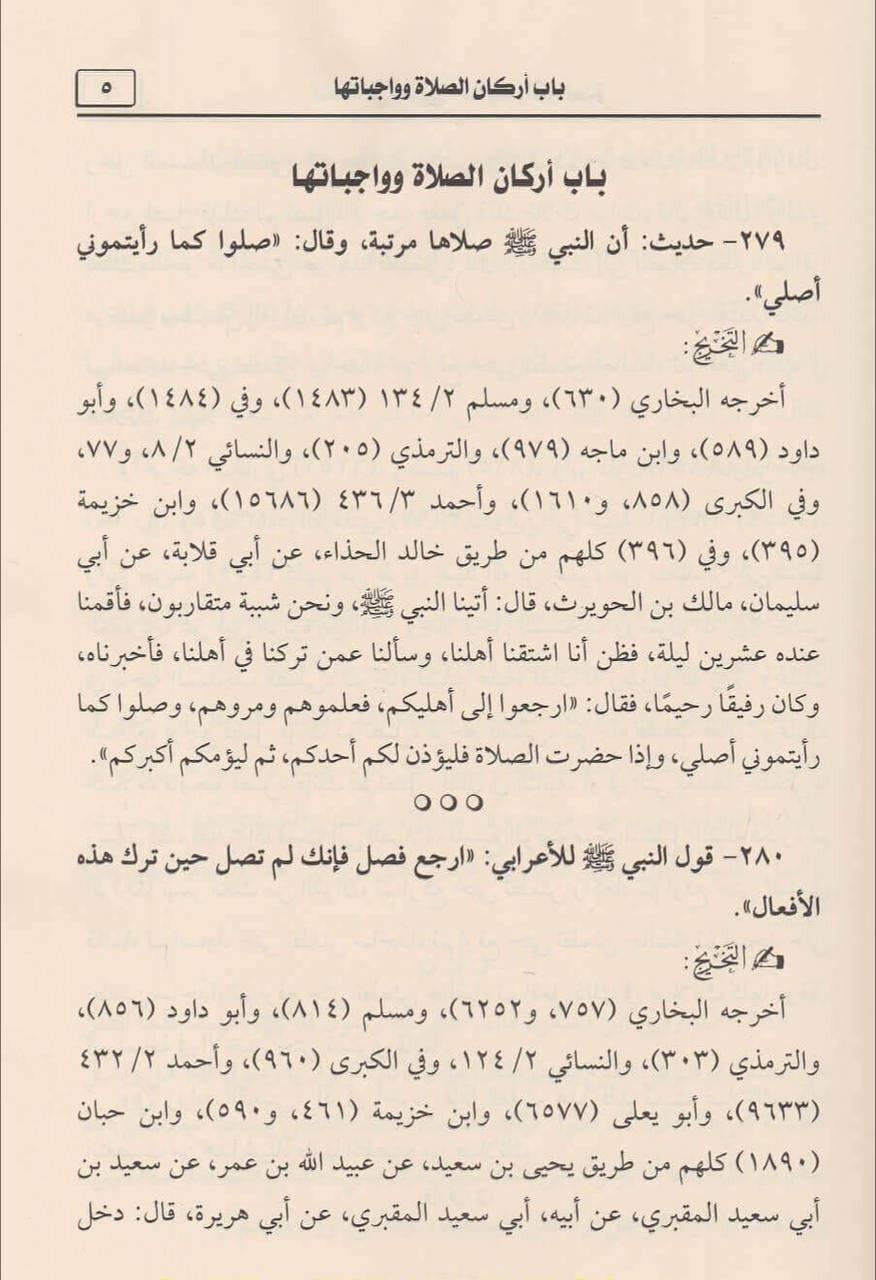 باب أركان الصلاة وواجباتها ٥
باب أركان الصلاة وواجباتها
٢٧٩- حديث: أن النبي ﷺ صلاها مرتبة، وقال: «صلوا كما رأيتموني
أصلي».
التخريج:
أخرجه البخاري (٦٣٠)، ومسلم ٢/ ١٣٤ (١٤٨٣)، وفي (١٤٨٤)، وأبو
داود (٥٨٩)، وابن ماجه (٩٧٩)، والترمذي (٢٠٥)، والنسائي ٢/ ٨، و٧٧،
وفي الكبرى (٨٥٨، و١٦١٠)، وأحمد ٣/ ٤٣٦ (١٥٦٨٦)، وابن خزيمة
(٣٩٥)، وفي (٣٩٦) كلهم من طريق خالد الحذاء، عن أبي قلابة، عن أبي
سليمان، مالك بن الحويرث، قال: أتينا النبي ﷺ، ونحن شببة متقاربون، فأقمنا
عنده عشرين ليلة، فظن أنا اشتقنا أهلنا، وسألنا عمن تركنا في أهلنا، فأخبرناه،
وكان رفيقًا رحيمًا، فقال: «ارجعوا إلى أهليكم، فعلموهم ومروهم، وصلوا كما
رأيتموني أصلي، وإذا حضرت الصلاة فليؤذن لكم أحدكم، ثم ليؤمكم أكبركم».
٢٨٠- قول النبي ﷺ للأعرابي: «ارجع فصل فإنك لم تصل حين ترك هذه
الأفعال».
التخريج:
أخرجه البخاري (٧٥٧، و٦٢٥٢)، ومسلم (٨١٤)، وأبو داود (٨٥٦)،
والترمذي (٣٠٣)، والنسائي ٢/ ١٢٤، وفي الكبرى (٩٦٠)، وأحمد ٢/ ٤٣٢
(٩٦٣٣)، وأبو يعلى (٦٥٧٧)، وابن خزيمة (٤٦١، و٥٩٠)، وابن حبان
(١٨٩٠) كلهم من طريق يحيى بن سعيد، عن عبيد الله بن عمر، عن سعيد بن
أبي سعيد المقبري، عن أبيه، أبي سعيد المقبري، عن أبي هريرة، قال: دخل